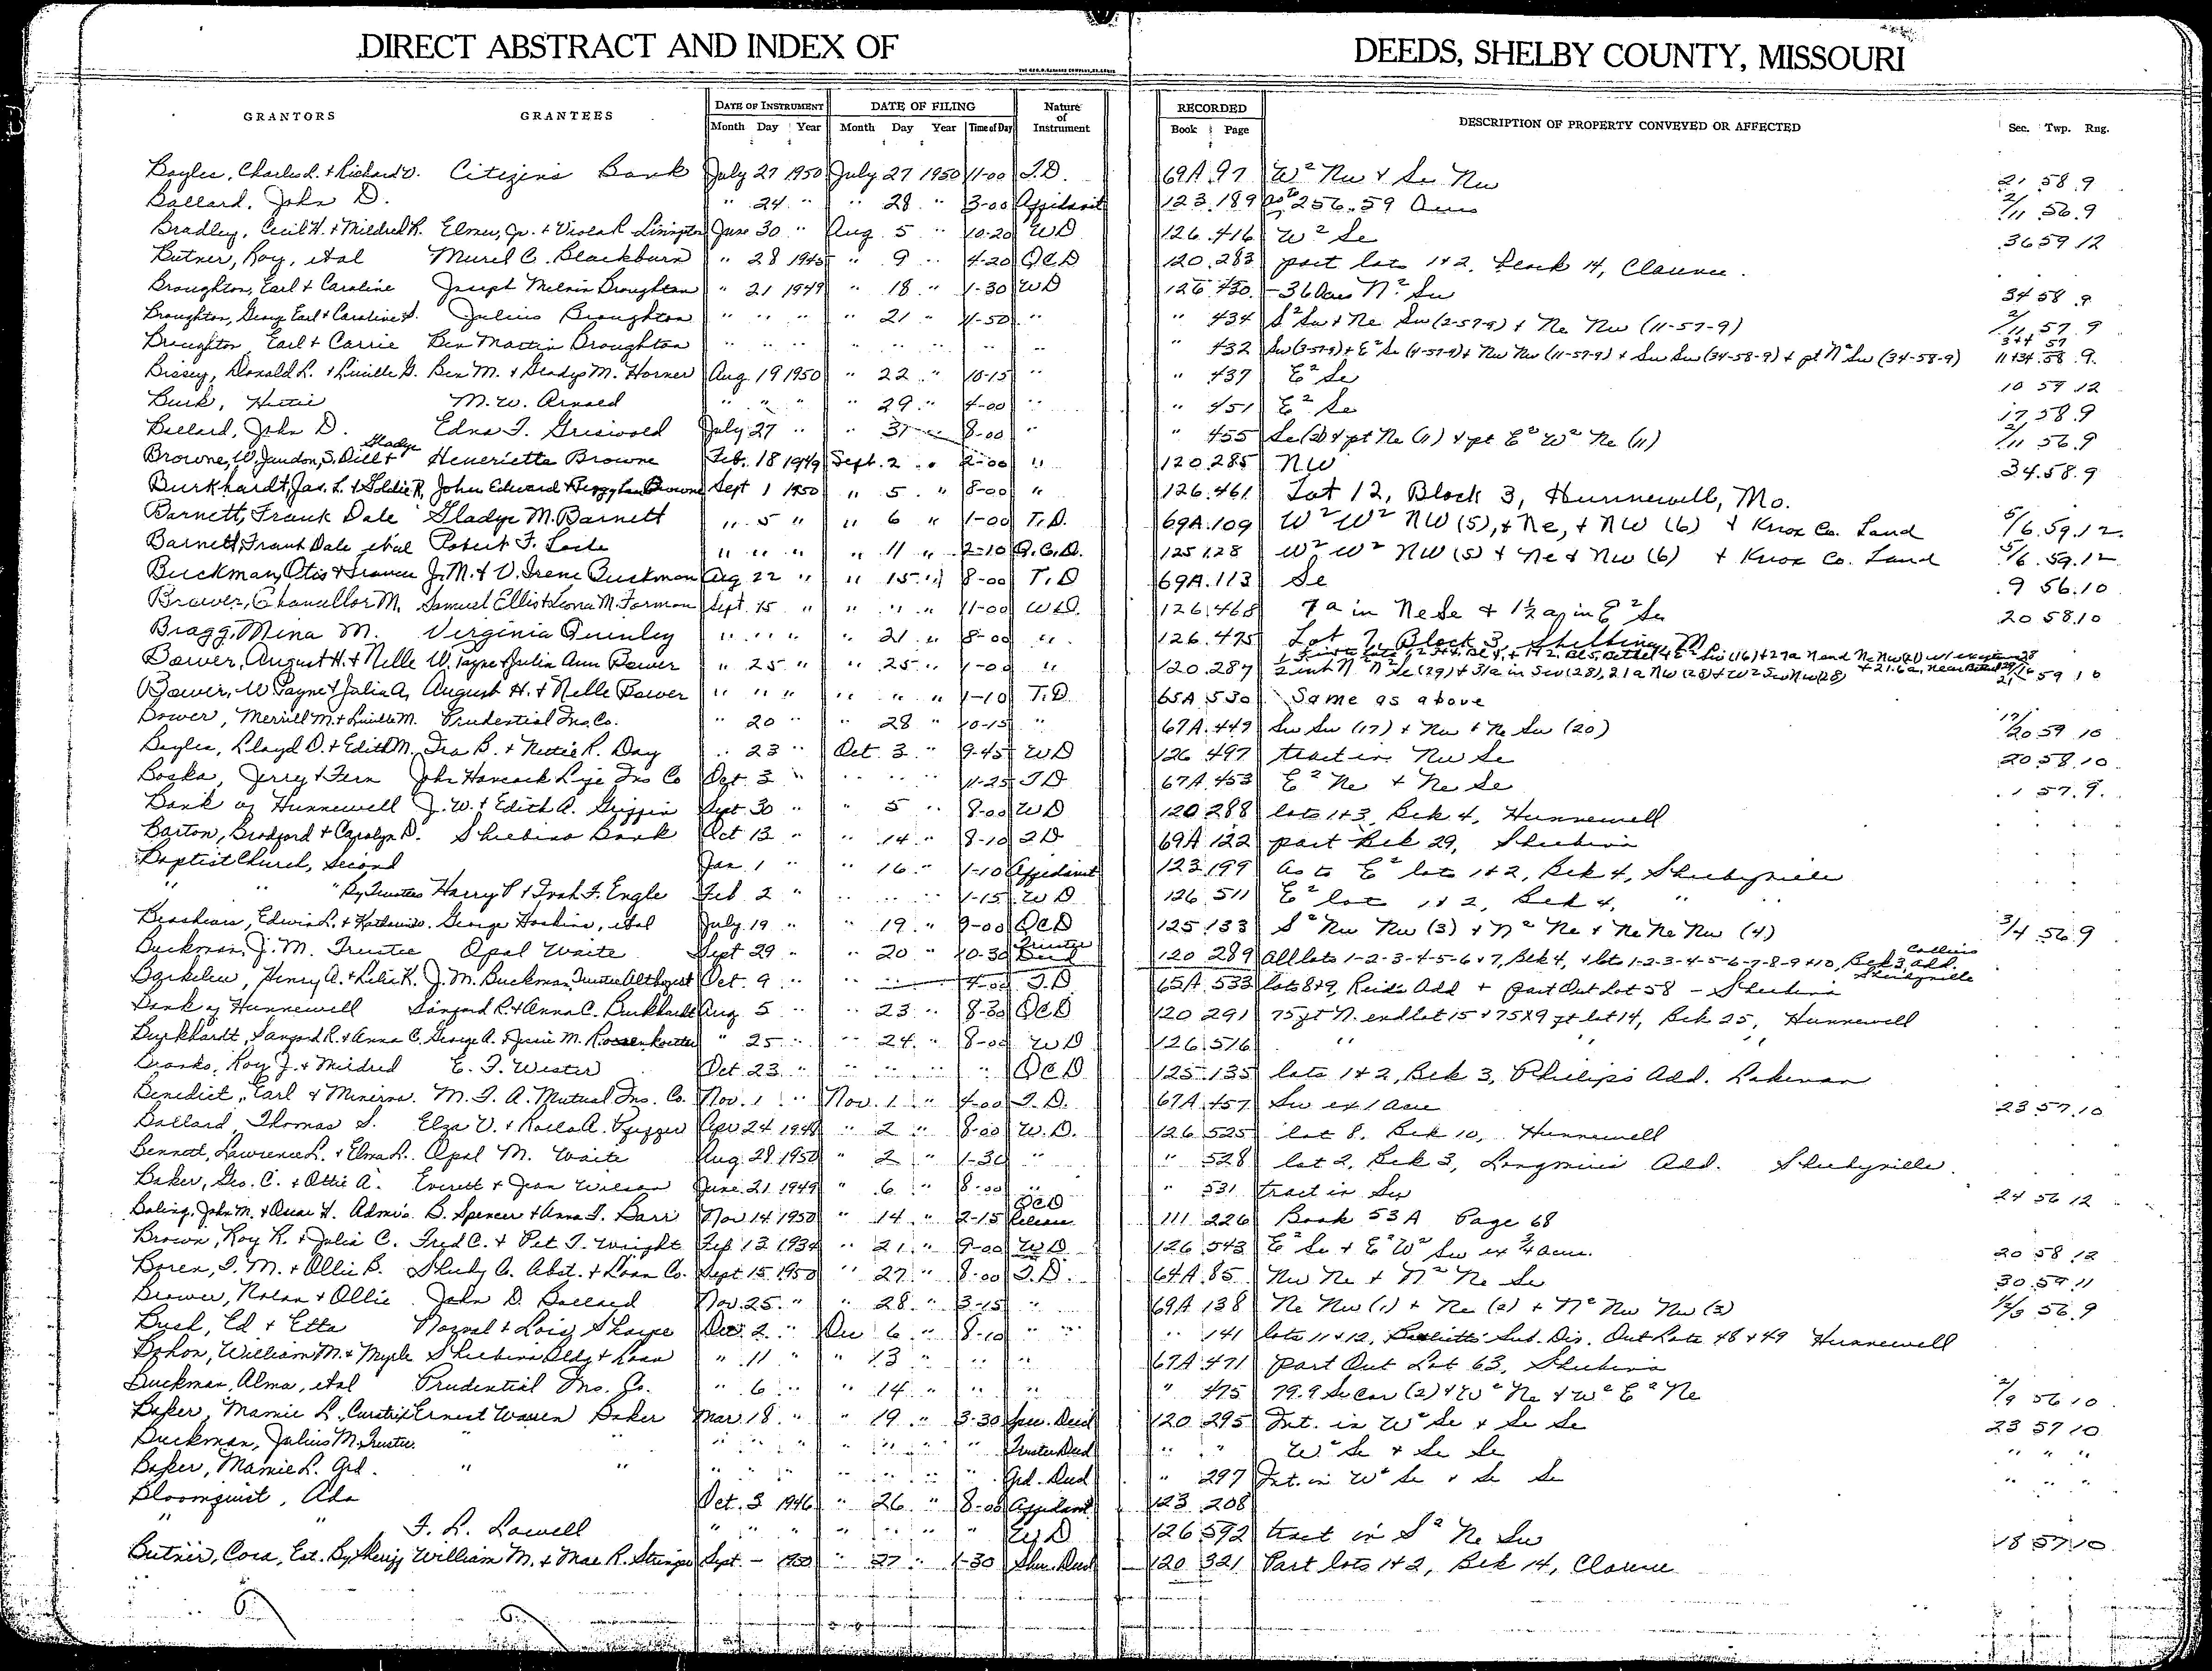 DIRECT ABSTRACT AND INDEX OF DEEDS, SHELBY COUNTY, MISSOURI
GRANTORS GRANTEES DATE OF INSTRUMENT DATE OF FILING Nature of Instrument RECORDED DESCRIPTION OF PROPERTY CONVEYED OR AFFECTED Sec. Twp. Rng.
Month Day Year Month Day Year Time of Day Book Page
Bayles, Charles L. + Richard V. Citizens Bank July 27 1950 July 27 1950 11-00 T.D. 69A 97 W² Nw + Se Nw 21 58 9
Ballard, John D. " 24 " " 28 " 3-00 Affidavit 123 189 as to 256.59 Acres 2/11 56 9
Bradley, Cecil H. + Mildred R. Elmer, Jr. + Viola R. June 30 " Aug. 5 " 10-20 WD 126 416 W² Se 36 59 12
Butner, Roy, etal Murel C. Blackburn " 28 1945 " 9 " 4-20 QCD 120 283 part lots 1+2, Block 14, Clarence.
Broughton, Earl + Caroline Joseph Melvin Broughton " 21 1949 " 18 " 1-30 WD 126 430 -36 Acres N² Sw 34 58 9
Broughton, George Earl + Caroline S. Julius Broughton " " " " 21 " 11-50 " " 434 S² Sw + Ne Sw (2-57-9) + Ne Nw (11-57-9) 2/11 57 9
Broughton, Earl + Carrie Ben Martin Broughton " " " " " " " " " 432 Sw (3-57-9) + E² Se (4-57-9) + Nw Nw (11-57-9) + Sw Sw (34-58-9) + pt N² Sw (34-58-9) 3+4 57 11+34 58 9
Bissey, Donald L. + Lucille G. Ben M. + Gladys M. Horner Aug. 19 1950 " 22 " 10-15 " " 437 E² Se 10 59 12
Burk, Hettie M. W. Arnold " " " " 29 " 4-00 " " 451 E² Se 17 58 9
Ballard, John D. Edna T. Griswold July 27 " " 31 8-00 " " 455 Se (2) + pt Ne (11) + pt E² W² Ne (11) 2/11 56 9
Browne, W. Jaudon, S. Dill + Gladys Henerietta Browne Feb. 18 1949 Sept. 2 " 2-00 " 120 285 NW 34 58 9
Burkhardt, Jas. L. + Goldie R. John Edward + Peggy Lou Browne Sept 1 1950 " 5 " 8-00 " 126 461 Lot 12, Block 3, Hunnewell, Mo.
Barnett, Frank Dale Gladys M. Barnett " 5 " " 6 " 1-00 T.D. 69A 109 W² W² NW (5), + Ne, + NW (6) + Knox Co. Land 5/6 59 12
Barnett, Frank Dale etal Robert F. " " " " 11 " 2-10 Q.C.D. 125 128 W² W² NW (5) + Ne + Nw (6) + Knox Co. Land 5/6 59 12
Buckman, Otis + Frances J. M. + V. Irene Buckman Aug 22 " " 15 " 8-00 T.D 69A 113 Se 9 56 10
Brower, Chancellor M. Samuel Ellis + Leona M. Forman Sept. 15 " " " " 11-00 W.D. 126 468 7a in Ne Se + 1½ a in E² Se 20 58 10
Bragg, Mina M. Virginia Quinley " " " " 21 " 8-00 " 126 475 Lot 7, Block 3, Shelbina, Mo.
Bower, August H. + Nelle W. Payne + Julia Ann Bower " 25 " " 25 " 1-00 " 120 287 N² N² Se (29) + 31a in Sw (28), 21a Nw (28) + W² Sw Nw (28) 59 10
Bower, W. Payne + Julia A. August H. + Nelle Bower " " " " " " 1-10 T.D. 65A 530 Same as above
Bower, Merrill M. + Lucille M. Prudential Ins. Co. " 20 " " 28 " 10-15 " 67A 449 Sw Sw (17) + Nw + Ne Sw (20) 17/20 59 10
Bayles, Lloyd D. + Edith M. Ira B. + Nettie R. Day " 23 " Oct. 3 " 9-45 WD 126 497 tract in Nw Se 20 58 10
Boska, Jerry + Fern John Hancock Life Ins Co Oct. 3 " " " " 11-25 T D 67A 453 E² Ne + Ne Se 1 57 9
Bank of Hunnewell J. W. + Edith A. Griffin Sept. 30 " " 5 " 8-00 WD 120 288 lots 1+3, Blk 4, Hunnewell
Barton, Bradford + Carolyn D. Shelbina Bank Oct 13 " " 14 " 8-10 TD 69A 122 part Blk 29, Shelbina
Baptist Church, Second Jan. 1 " " 16 " 1-10 Affidavit 123 199 as to E² lots 1+2, Blk 4, Shelbyville
" " " By Trustees Harry P + Ivah F. Engle Feb 2 " " " " 1-15 W D 126 511 E² lots 1+2, Blk 4, " "
Brashears, Edwin L. + Katherine. George Hoskins, etal July 19 " " 19 " 9-00 QCD 125 133 S² Nw Nw (3) + N² Ne + Ne Ne Nw (4) 3/4 56 9
Buckman, J. M. Trustee Opal Waite Sept 29 " " 20 " 10-30 Trustee Deed 120 289 all lots 1-2-3-4-5-6+7, Blk 4, + lots 1-2-3-4-5-6-7-8-9+10, Blk 3, Collins add. Shelbyville
Barkelew, Henry A. + Lelia K. J. M. Buckman, Trustee Oct. 9 " " 4-00 T.D 65A 533 lots 8+9, Reids Add + part Out Lot 58 - Shelbina
Bank of Hunnewell Sanford R. + Anna C. Burkhardt Aug. 5 " " 23 " 8-30 QCD 120 291 75 ft N. end lot 15 + 75X9 ft lot 14, Blk 25, Hunnewell
Burkhardt, Sanford R. + Anna C. George A. + Jessie M. " 25 " " 24 " 8-00 WD 126 576 " " "
Branks, Roy J. + Mildred E. F. Wester Oct. 23 " " " " " QCD 125 135 lots 1+2, Blk 3, Philips Add. Lakenan
Benedict, Earl + Minerva M. F. A. Mutual Ins. Co. Nov. 1 " Nov. 1 " 4-00 T.D. 67A 457 Sw ex 1 acre 23 57 10
Ballard, Thomas S. Elza V. + Apr 24 1948 " 2 " 8-00 W.D. 126 525 lot 8, Blk 10, Hunnewell
Bennett, Lawrence L. + Elma L. Opal M. Waite Aug. 28 1950 " 2 " 1-30 " " 528 lot 2, Blk 3, Longmires Add. Shelbyville
Baker, Geo. C. + Ottie A. Everett + Jean Wilson June 21 1949 " 6 " 8-00 " " 531 tract in Sw 24 56 12
Boling, John M. + Oscar H. Admrs. B. Spencer + Anna T. Barr Nov 14 1950 " 14 " 2-15 QCD Release 111 226 Book 53A Page 68
Brown, Roy R. + Julia C. Fred C. + Pet T. Wright Feb 13 1934 " 21 " 9-00 WD 126 543 E² Se + E² W² Sw ex ¾ acre. 20 58 12
Boren, T. M. + Ollie B. Shelby Co. Abst. + Loan Co. Sept. 15 1950 " 27 " 8-00 T.D. 64A 85 Nw Ne + N² Ne Se 30 59 11
Brower, Nolan + Ollie John D. Ballard Nov. 25 " " 28 " 3-15 " 69A 138 Ne Nw (1) + Ne (2) + N² Nw Nw (3) 56 9
Buck, Ed + Etta Norval + Lois Sharpe Dec. 2 " Dec 6 " 8-10 " " 141 lots 11+12, Sub. Div. Out Lots 48+49 Hunnewell
Bohon, William M. + Myrle Shelbina Bldg + Loan " 11 " " 13 " " " 67A 471 part Out Lot 63, Shelbina
Buckman, Alma, etal Prudential Ins. Co. " 6 " " 14 " " " " 475 79.9 Se Cor (2) + W² Ne + W² E² Ne 2/9 56 10
Baker, Mamie L., Curatrix Ernest Warren Baker Mar. 18 " " 19 " 3-30 120 295 Int. in W² Se + Se Se 23 57 10
Buckman, Julius M. Trustee " " " " " " " " " Trustee Deed " " W² Se + Se Se " " "
Baker, Mamie L. Grd. " " " " " " " " " Grd. Deed " 297 Int. in W² Se + Se Se " " "
Bloomquist, Ada Oct. 3 1946 " 26 " 8-00 Affidavit 123 208
" " F. L. Lowell " " " " " " " WD 126 592 tract in S² Ne Sw 18 57 10
Butner, Cora, Est. By Sheriff William M. + Mae R. Sept. - 1950 " 27 " 1-30 Sher. Deed 120 321 Part lots 1+2, Blk 14, Clarence